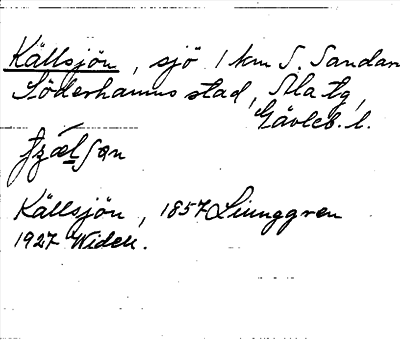 Källsjön, sjö 1 km S. Sandan
Söderhamns stad, Ala tg,
Gävleb. l.
Källsjön, 1857 Ljunggren
1927 Widén.